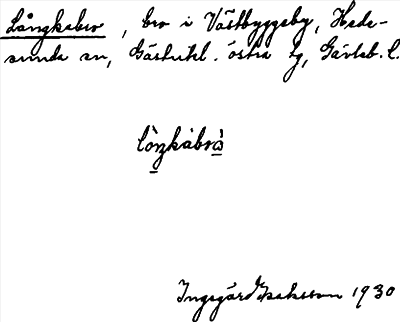 Långkabro, bro i Västbyggeby, Hede-
sunda sn, Gästrikl. östra tg, Gävleb. l.
lòŋkabrò
Ingegärd Isaksson 1930